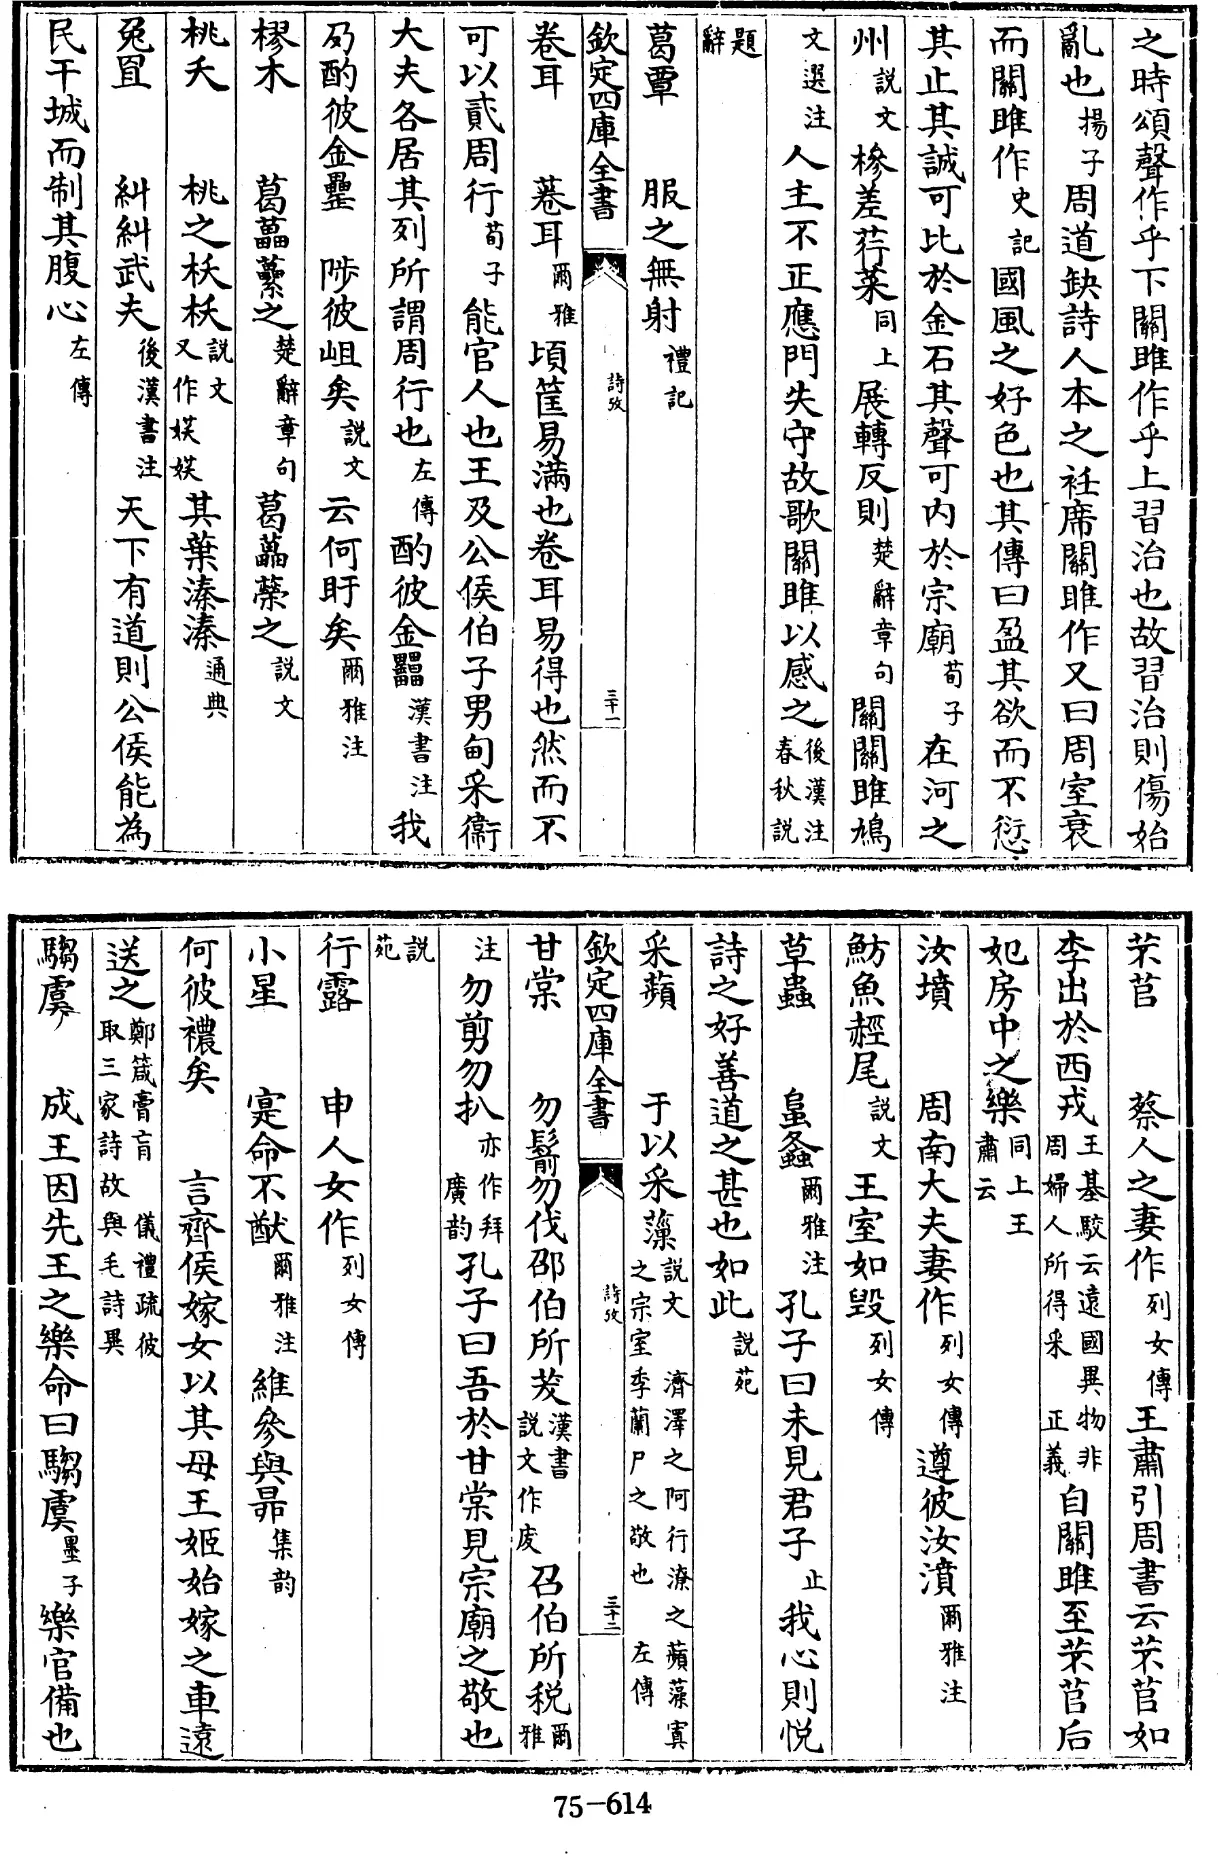 之時頌聲作乎下關雎作乎上習治也故習治則傷始
亂也揚子周道缺詩人本之衽席關雎作又曰周室衰
而關雎作史記國風之好色也其傳曰盈其欲而不愆
其止其誠可比於金石其聲可内於宗廟荀子在河之
州説文槮差荇菜同上展轉反則楚辭章句關關雎鳩
文選注人主不正應門失守故歌關雎以感之後漢注春秋説
題辭
葛覃　服之無射禮記
欽定四庫全書　詩攷　三十一
卷耳　菤耳爾雅頃筐易滿也卷耳易得也然而不
可以貳周行荀子能官人也王及公侯伯子男甸采衛
大夫各居其列所謂周行也左傳酌彼金罍漢書注我
夃酌彼金罍　陟彼岨矣説文云何盱矣爾雅注
樛木　葛藟虆之楚辭章句葛藟蘽之説文
桃夭　桃之枖枖説文又作㛂㛂其葉溱溱通典
兔罝　糾糾武夫後漢書注天下有道則公侯能為
民干城而制其腹心左傳
芣苢　蔡人之妻作列女傳王肅引周書云芣苢如
李出於西戎王基駮云遠國異物非周婦人所得采正義自關雎至芣苢后
妃房中之樂同上王肅云
汝墳　周南大夫妻作列女傳遵彼汝濆爾雅注
魴魚䞓尾説文王室如毀列女傳
草蟲　阜螽爾雅注孔子曰未見君子止我心則悦
詩之好善道之甚也如此説苑
采蘋　于以采藻説文濟澤之阿行潦之蘋藻寘之宗室季蘭尸之敬也左傳
欽定四庫全書　詩攷　三十二
甘棠　勿鬋勿伐邵伯所茇漢書説文作废召伯所税爾雅
注勿剪勿扒亦作拜廣韵孔子曰吾於甘棠見宗廟之敬也
説苑
行露　申人女作列女傳
小星　寔命不猷爾雅注維參與昴集韵
何彼襛矣　言齊侯嫁女以其母王姬始嫁之車遠
送之鄭箴膏肓取三家詩故與毛詩異儀禮疏彼
騶虞　成王因先王之樂命曰騶虞墨子樂官備也
75-614